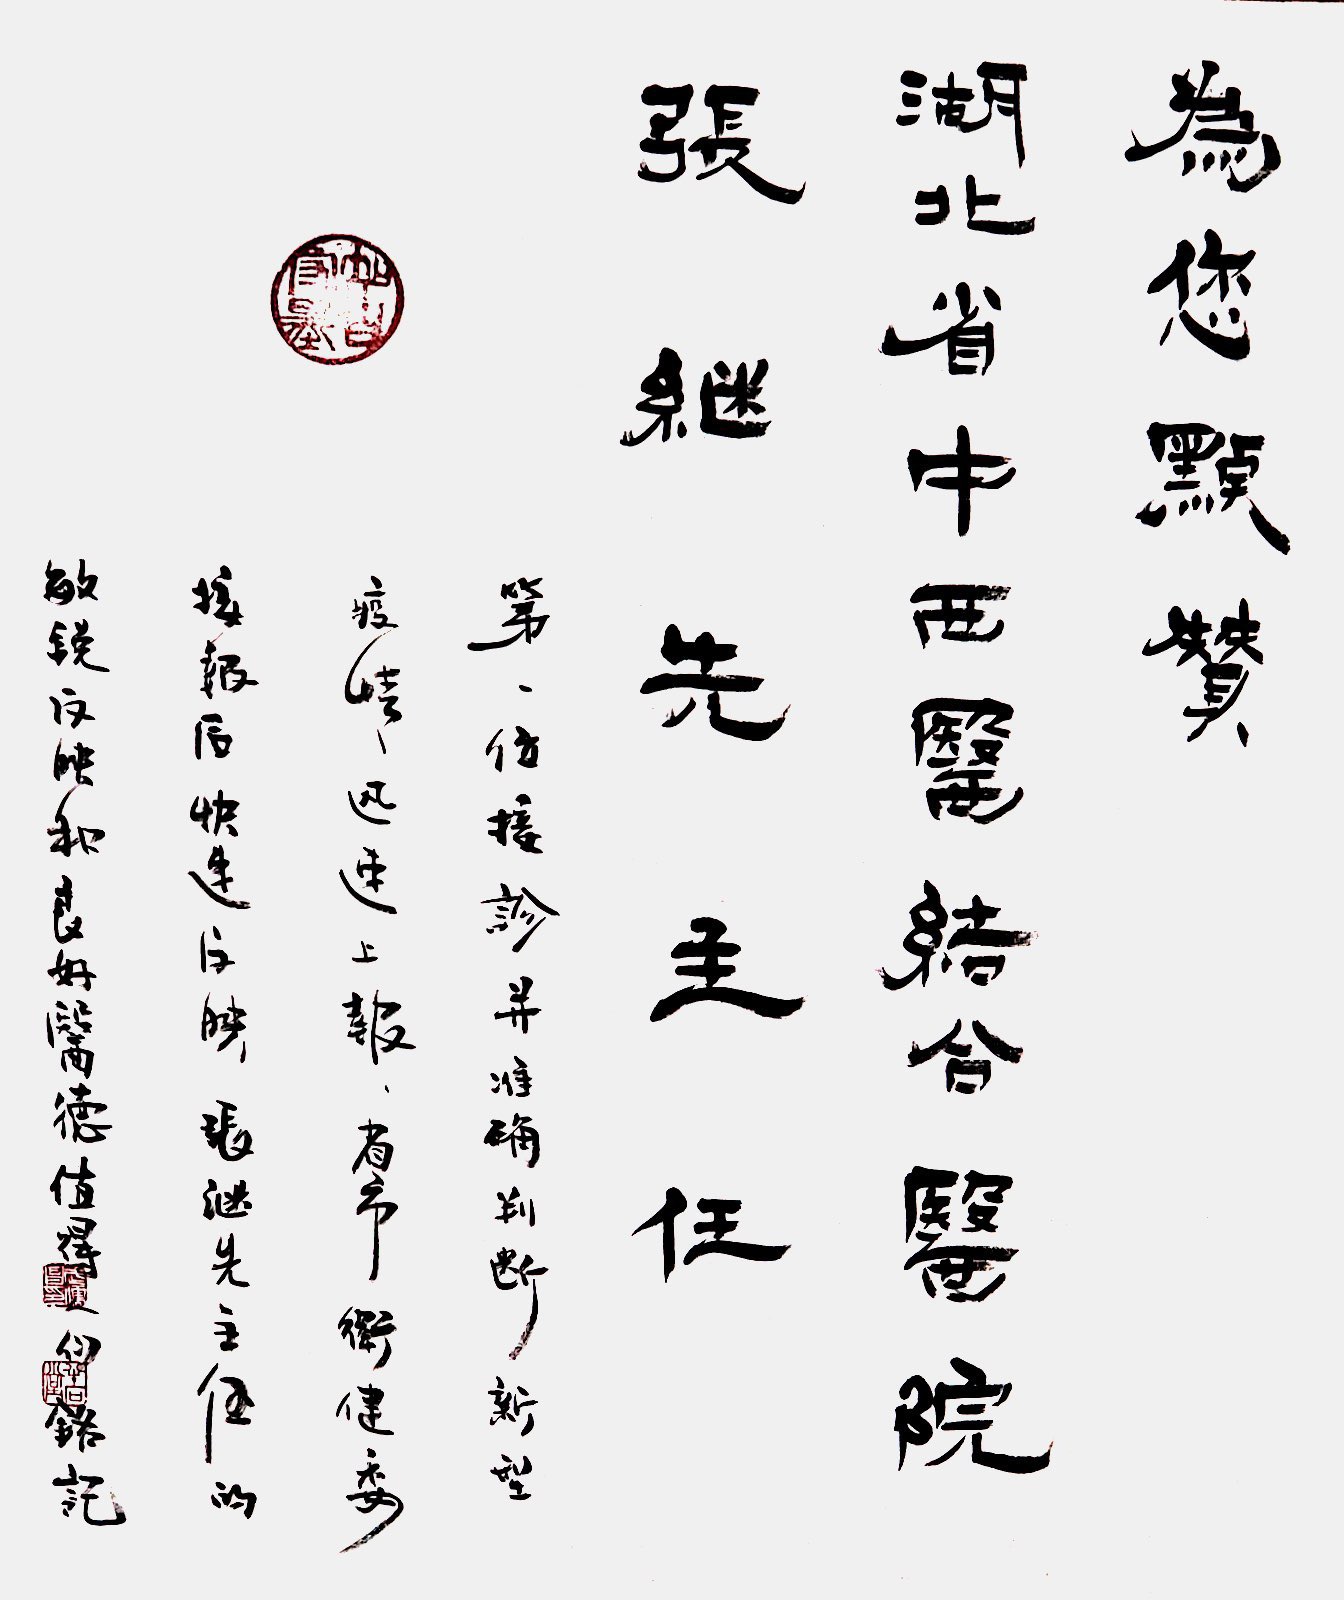 為您點赞
湖北省中西醫結合醫院
張继先主任
第一位接診并准确判断新型
疫情、迅速上報、省市衛健委
接報后快速反映張继先主任的
敏锐反映和良好醫德值得
銘記